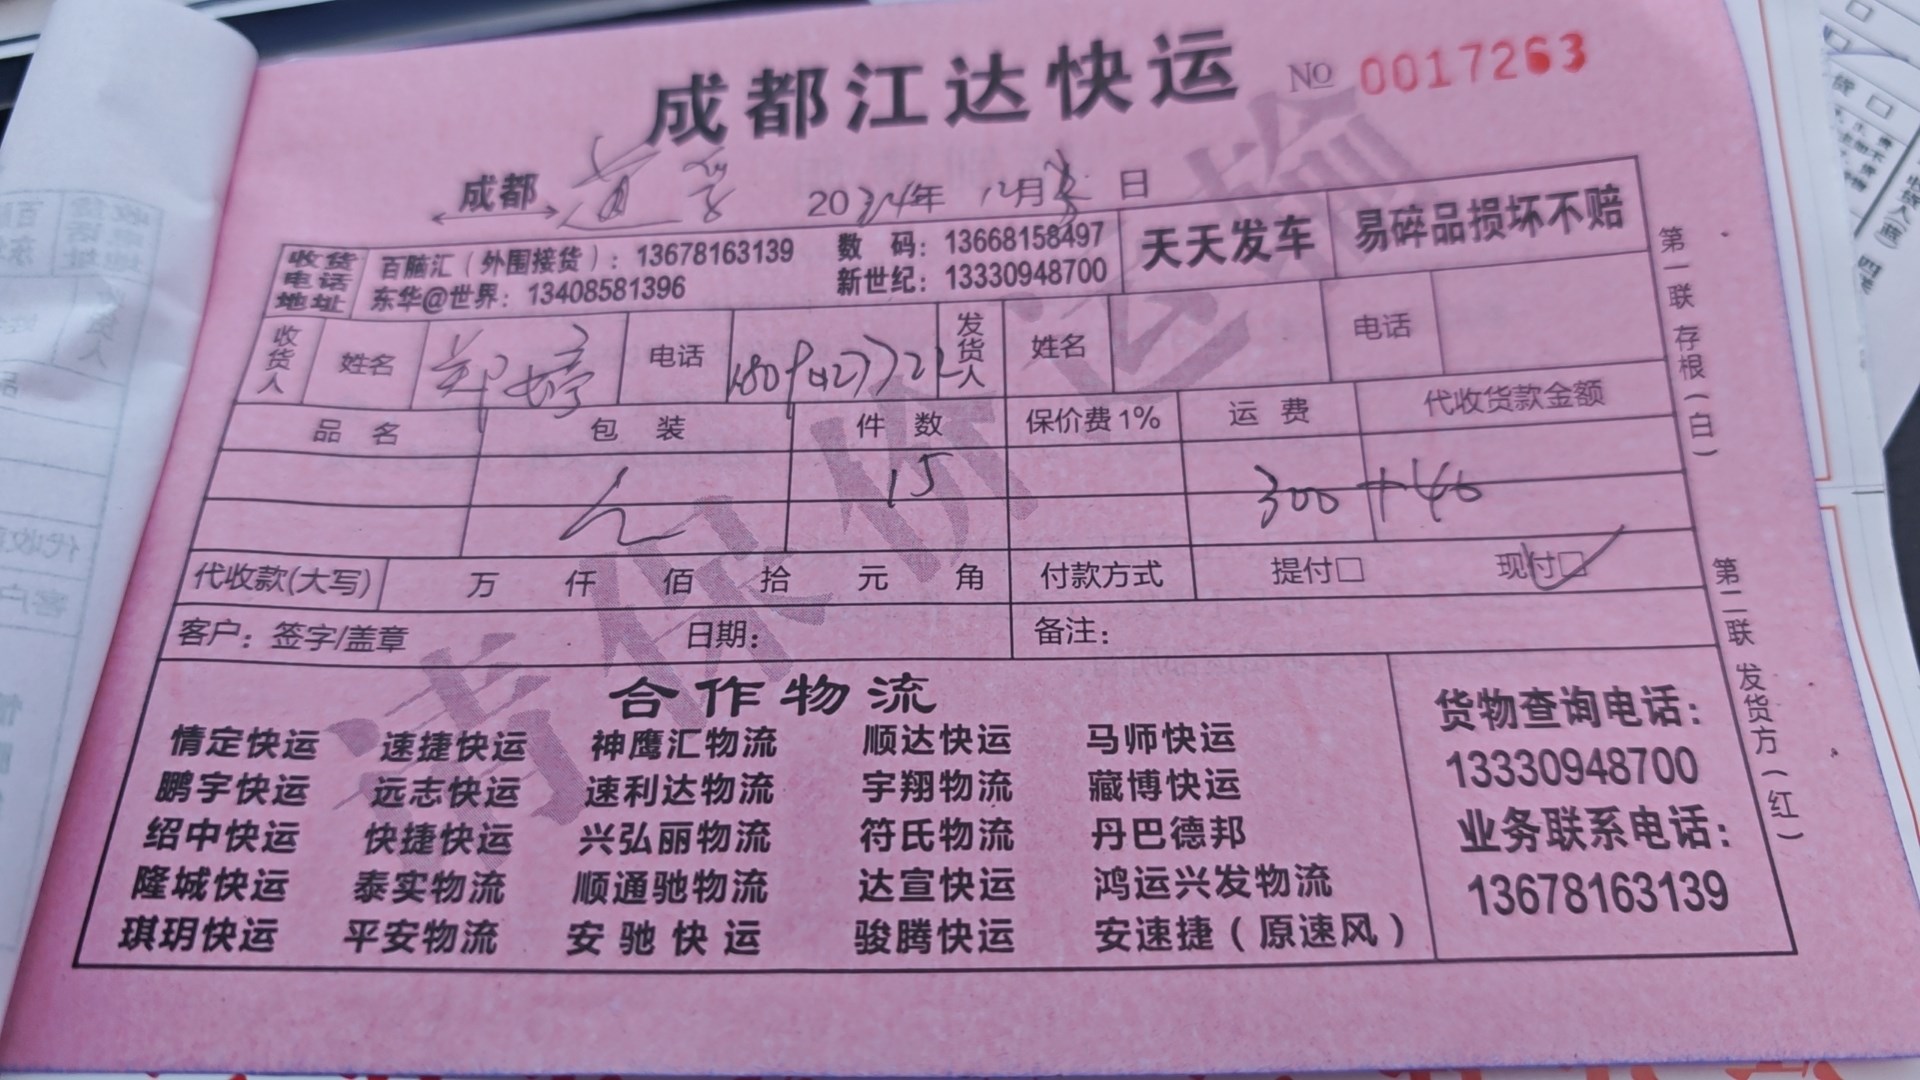 成都江达快运 No 0017263
成都 2024年 12月 日
收货电话地址 百脑汇（外围接货）：13678163139 数 码：13668158497 天天发车 易碎品损坏不赔
东华@世界：13408581396 新世纪：13330948700
收货人 姓名 郑婷 电话 发货人 姓名 电话
品 名 包 装 件 数 保价费1% 运 费 代收货款金额
15 300+40
代收款(大写) 万 仟 佰 拾 元 角 付款方式 提付□ 现付□
客户：签字/盖章 日期： 备注：
合作物流
情定快运 速捷快运 神鹰汇物流 顺达快运 马师快运
鹏宇快运 远志快运 速利达物流 宇翔物流 藏博快运
绍中快运 快捷快运 兴弘丽物流 符氏物流 丹巴德邦
隆城快运 泰实物流 顺通驰物流 达宣快运 鸿运兴发物流
琪玥快运 平安物流 安驰快运 骏腾快运 安速捷（原速风）
货物查询电话：
13330948700
业务联系电话：
13678163139
第一联 存根（白）
第二联 发货方（红）
请保价运输